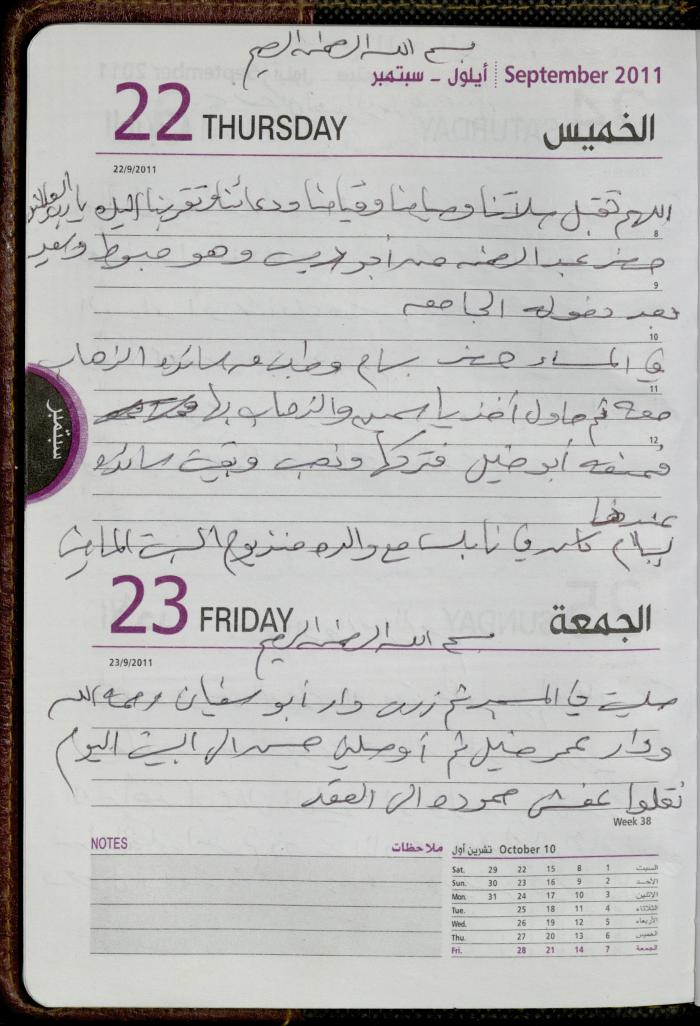 بسم الله الرحمن الرحيم
أيلول - سبتمبر September 2011
22 THURSDAY الخميس
22/9/2011
اللهم تقبل صلاتنا وصيامنا وقيامنا ودعائنا وتقربنا إليك يا رب العالمين
8
حضر عبد الرحمن من أبو ديس وهو مبسوط وسعيد
9
بعد دخوله الجامعه
10
في المساء حضر بسام وطلب من سائده الذهاب
11
معه ثم حاول أخذ ياسمين والذهاب بها
12
فمنعه أبو خليل فتركها وذهب وبقيت سائده
عندها
بسام كان في نابلس مع والده منذ يوم السبت الماضي
سبتمبر
23 FRIDAY الجمعة
بسم الله الرحمن الرحيم
23/9/2011
صليت في المسجد ثم زرت دار أبو سفيان رحمه الله
ودار عمر خليل ثم أوصلني حسن الى البيت اليوم
نقلوا عفش حموده الى العقد
Week 38
NOTES ملاحظات
October 10 تشرين أول
Sat. 29 22 15 8 1 السبت
Sun. 30 23 16 9 2 الأحد
Mon. 31 24 17 10 3 الاثنين
Tue. 25 18 11 4 الثلاثاء
Wed. 26 19 12 5 الأربعاء
Thu. 27 20 13 6 الخميس
Fri. 28 21 14 7 الجمعة